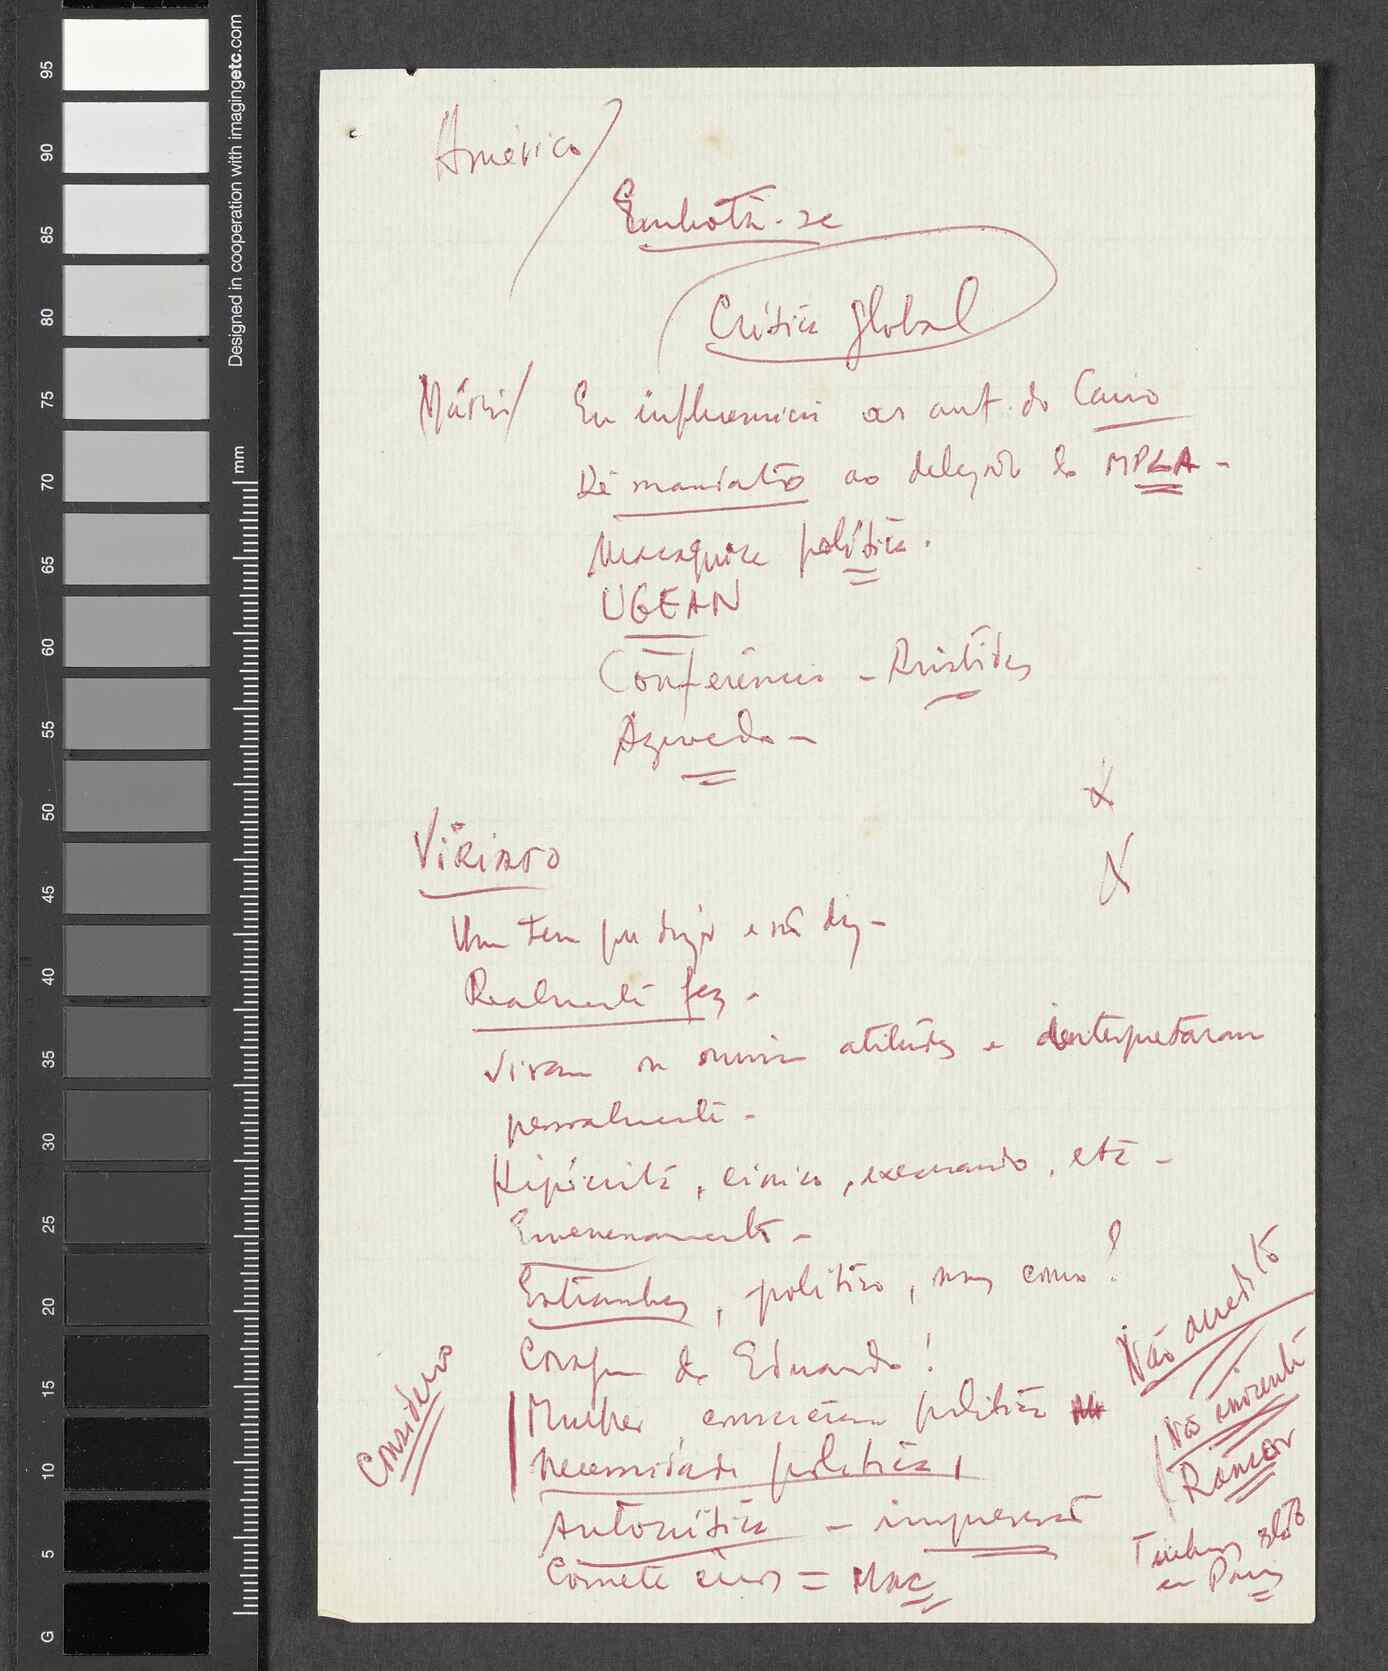 Américo/
Embotã-se
Crítica global
Mário/ Eu influenciei as aut. do Cairo
Dê mandato ao delegado do MPLA -
Macaquice política.
UGEAN
Conferência - Aristides
Azevedo -
Viriato
Um tem que dizer e não diz -
Realmente fez -
Viram em mim atitudes e interpretaram
pessoalmente -
Hipócrita, cínico, execrando, etc -
Envenenamento -
Estranhas, político, mas como?
Coragem do Eduardo!
Mulher, consciência política
necessidade política,
Autocrítica - impressão
Comete erros = Mac
Considero
Não acredito
Não inocente
Rancor
Tinham
em Paris
95
90
85
80
75
70
65
60
55
50
45
40
35
30
25
20
15
10
5
G
mm
Designed in cooperation with imagingetc.com